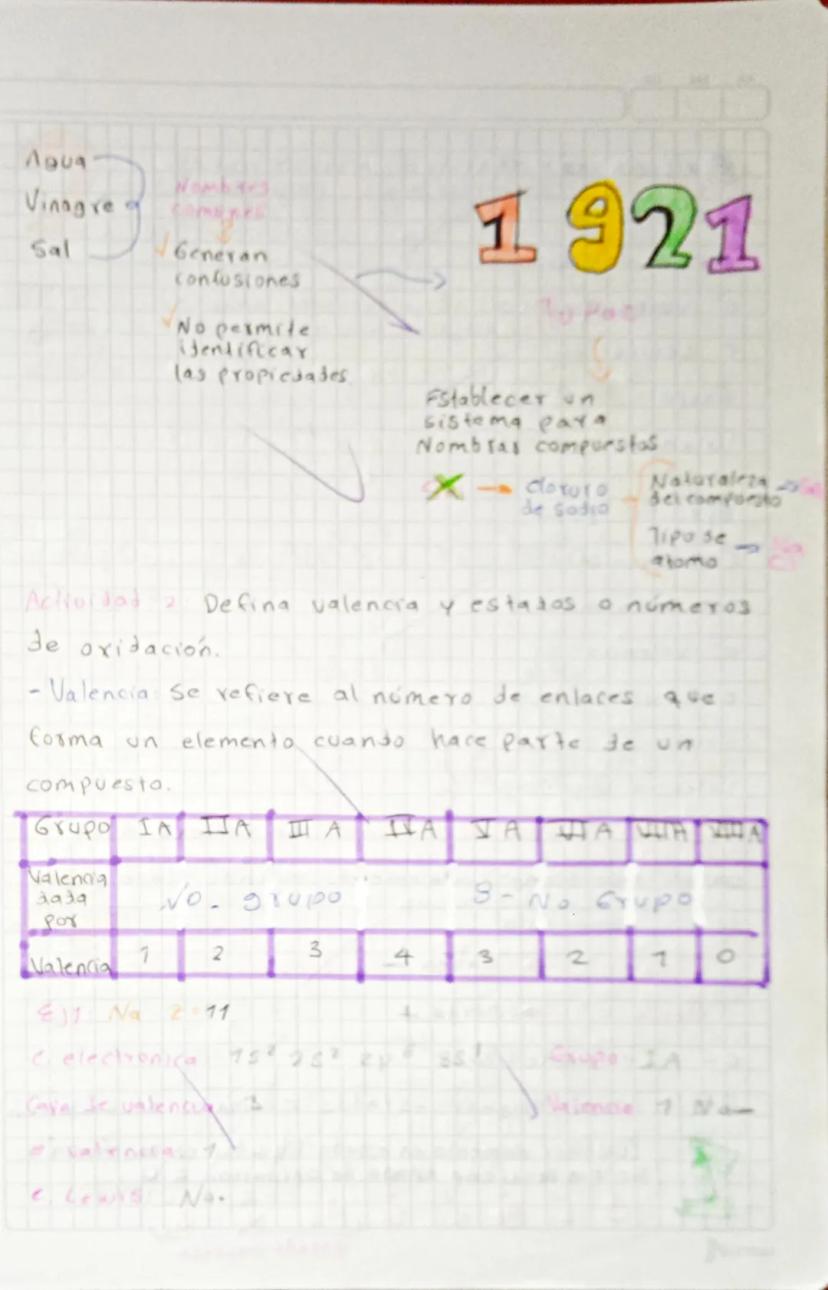 Agua
Vinagre
Sal
Nombres
comunes
Generan
confusiones
No permite
identificar
las propiedades
1921
Establecer un
sistema para
Nombras compuestos
cloruro
de sodio
Naturaleza
del compuesto
Tipo de
atomo
Actividad 2 Defina valencia y estados o números
de oxidación.
- Valencia se refiere al número de enlaces que
forma un elemento cuando hace parte de un
compuesto.
Grupo IA IIA III A IV A V A VI A VII A VIII A
Valencia
dada
por
No. grupo 8 - No Grupo
Valencia 1 2 3 4 3 2 1 0
Ej1 Na Z=11
C. electronica 1s² 2s² 2p⁶ 3s¹ Grupo IA
Capa de valencia 3 Valencia 1 Na—
e⁻ valencia 1
E. Lewis Na·